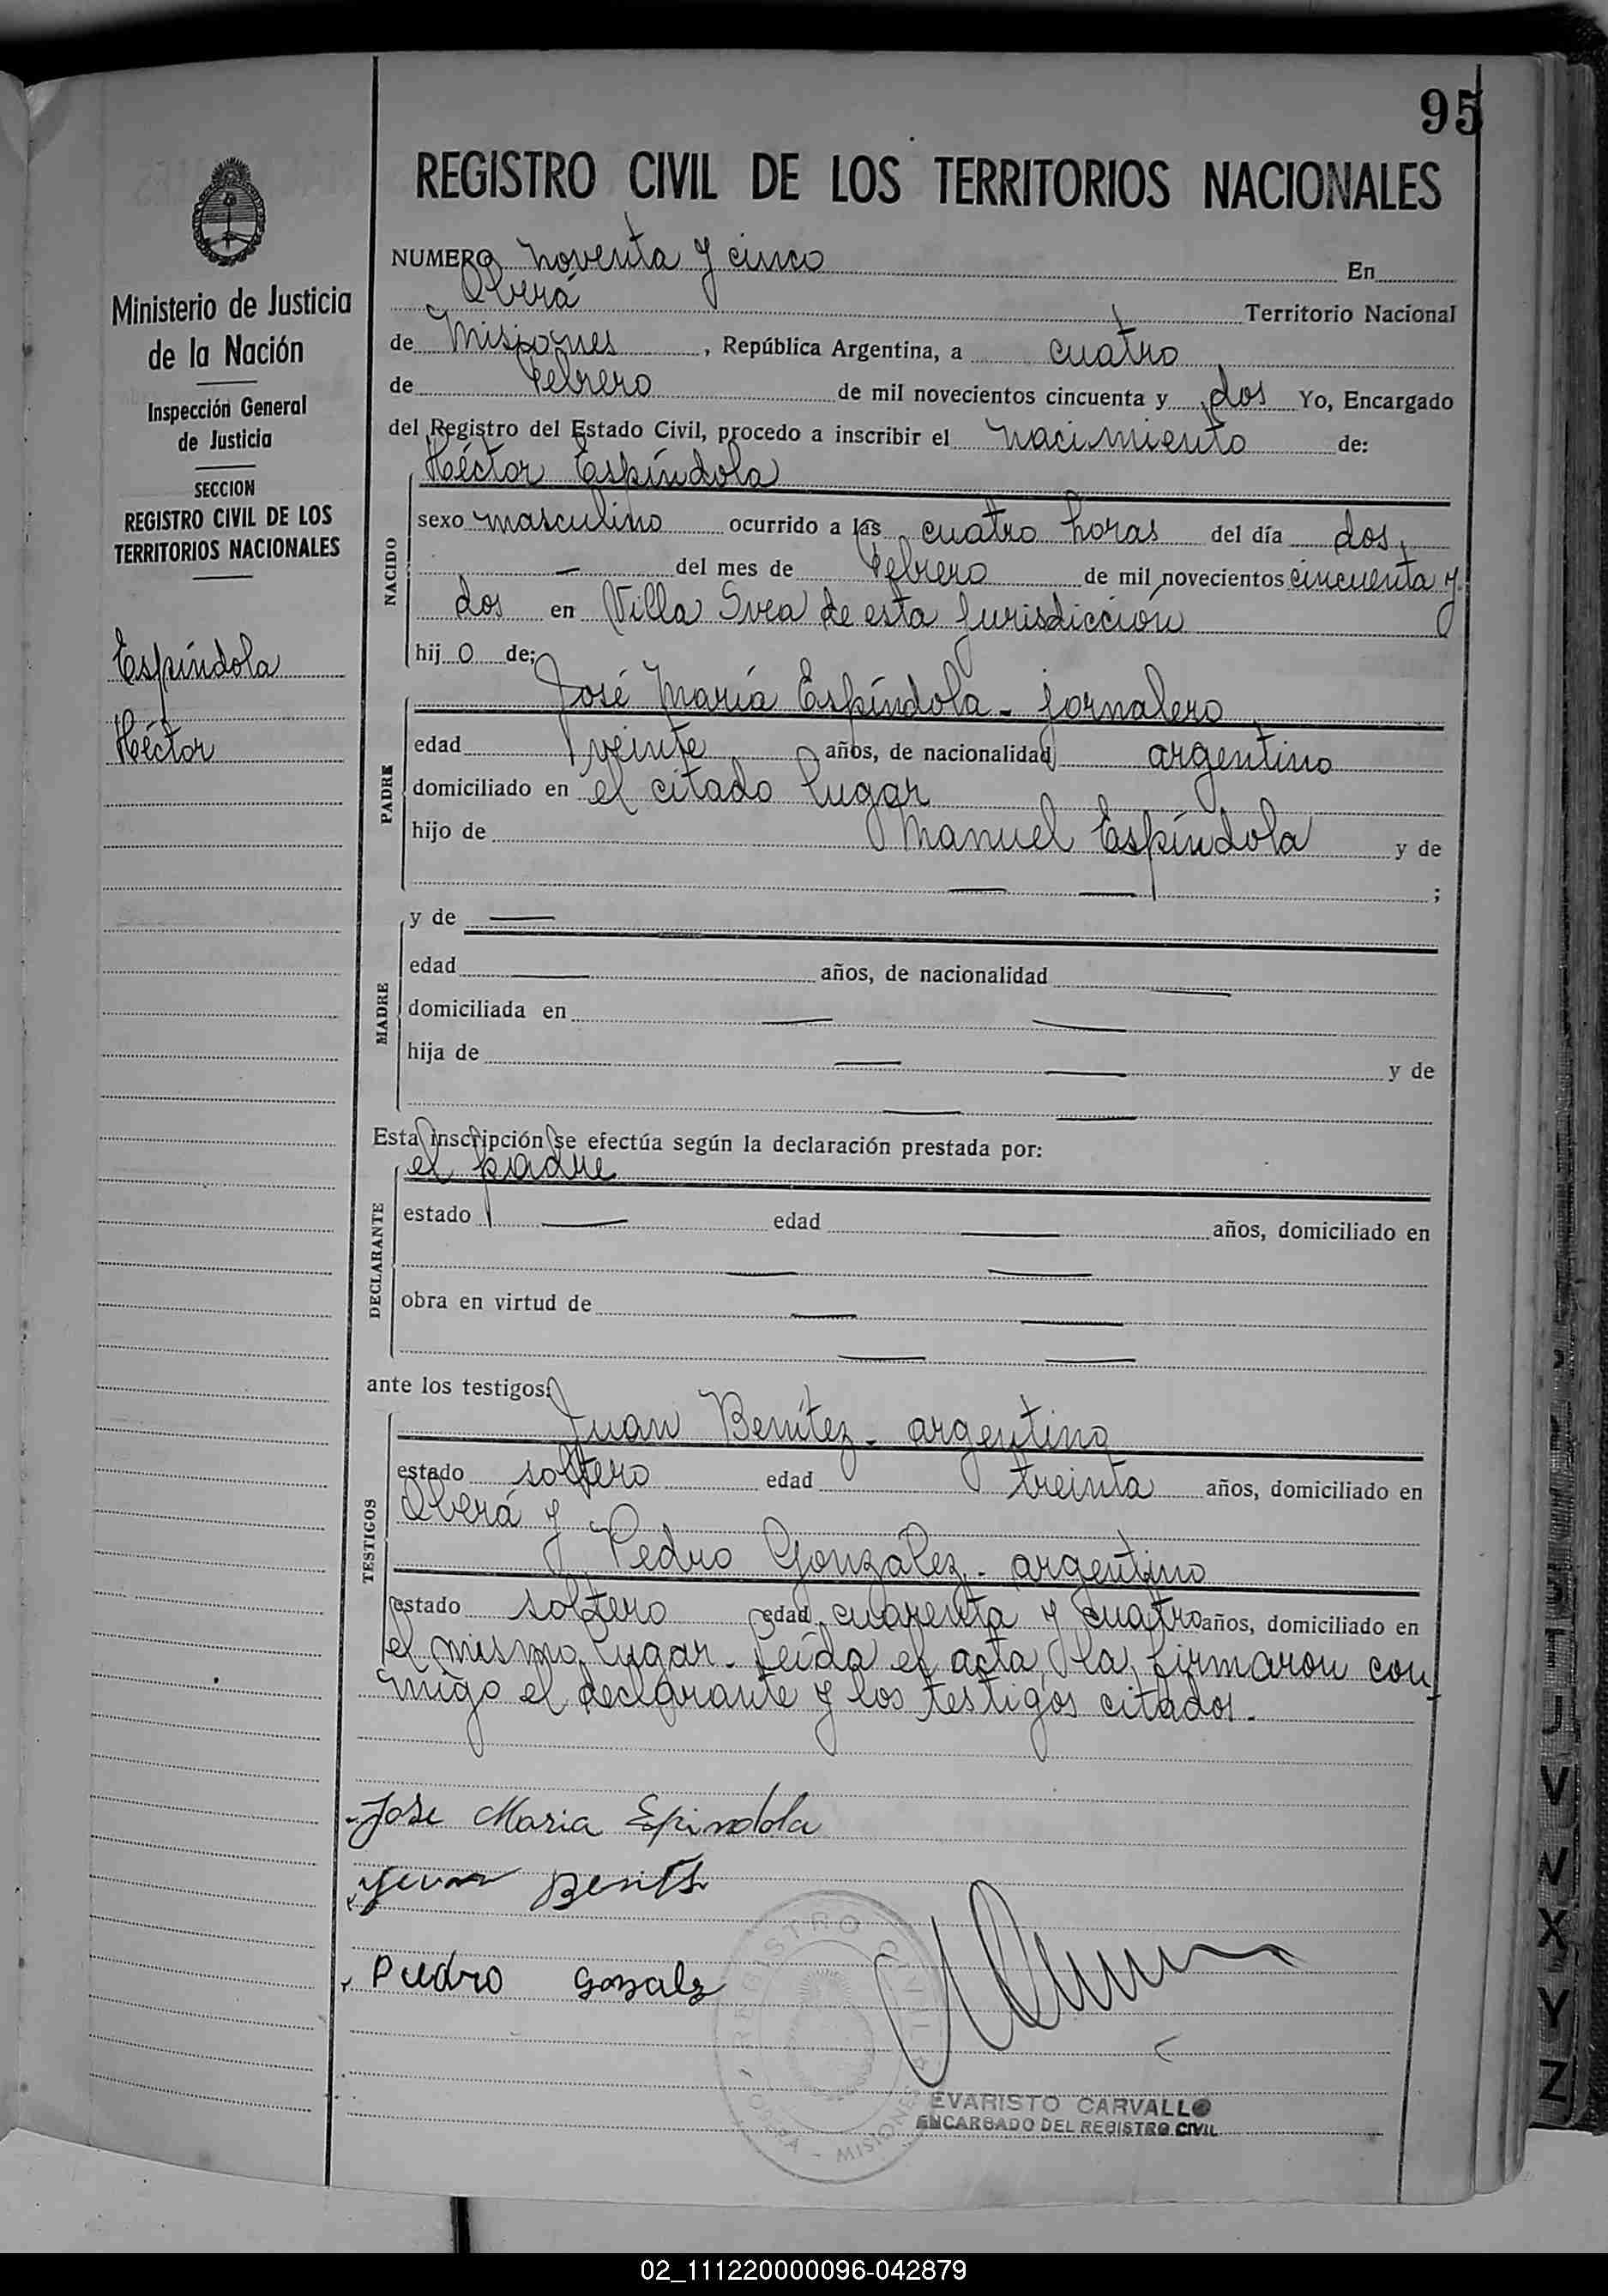 95
REGISTRO CIVIL DE LOS TERRITORIOS NACIONALES
Ministerio de Justicia
de la Nación
Inspección General
de Justicia
SECCION
REGISTRO CIVIL DE LOS
TERRITORIOS NACIONALES
Espíndola
Héctor
NUMERO noventa y cinco En
Oberá Territorio Nacional
de Misiones, República Argentina, a cuatro
de Febrero de mil novecientos cincuenta y dos Yo, Encargado
del Registro del Estado Civil, procedo a inscribir el nacimiento de:
NACIDO
Héctor Espíndola
sexo masculino ocurrido a las cuatro horas del día dos
— del mes de Febrero de mil novecientos cincuenta y
dos en Villa Svea de esta Jurisdicción
hijo de:
PADRE
José María Espíndola - jornalero
edad veinte años, de nacionalidad argentino
domiciliado en el citado lugar
hijo de Manuel Espíndola y de
— — ;
MADRE
y de —
edad — años, de nacionalidad —
domiciliada en — —
hija de — — y de
— —
Esta inscripción se efectúa según la declaración prestada por:
DECLARANTE
el padre
estado — edad — años, domiciliado en
— —
obra en virtud de — —
— —
ante los testigos:
TESTIGOS
Juan Benítez - argentino
estado soltero edad treinta años, domiciliado en
Oberá y
Pedro González - argentino
estado soltero edad cuarenta y cuatro años, domiciliado en
el mismo lugar. Leída el acta, la firmaron con-
migo el declarante y los testigos citados.
Jose Maria Espindola
Puedro Gonzalz
REGISTRO CIVIL
OBERA - MISIONES
EVARISTO CARVALLO
ENCARGADO DEL REGISTRO CIVIL
J
V
X
Y
Z
02_111220000096-042879